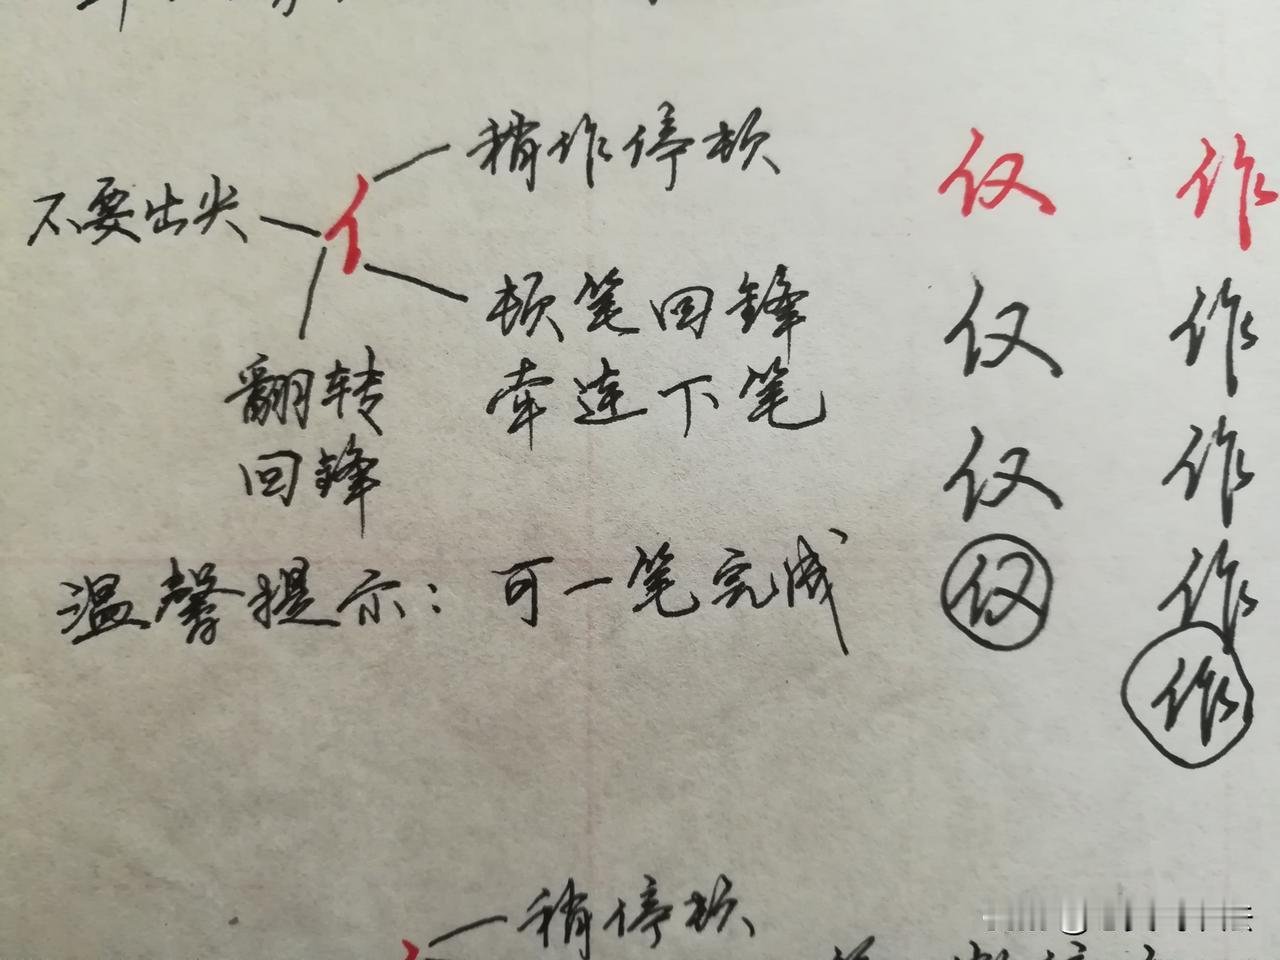 稍作停顿
不要出尖
亻
顿笔回锋
牵连下笔
翻转
回锋
温馨提示：可一笔完成
仅 作
仅 作
仅 作
仅 作
作
稍停顿